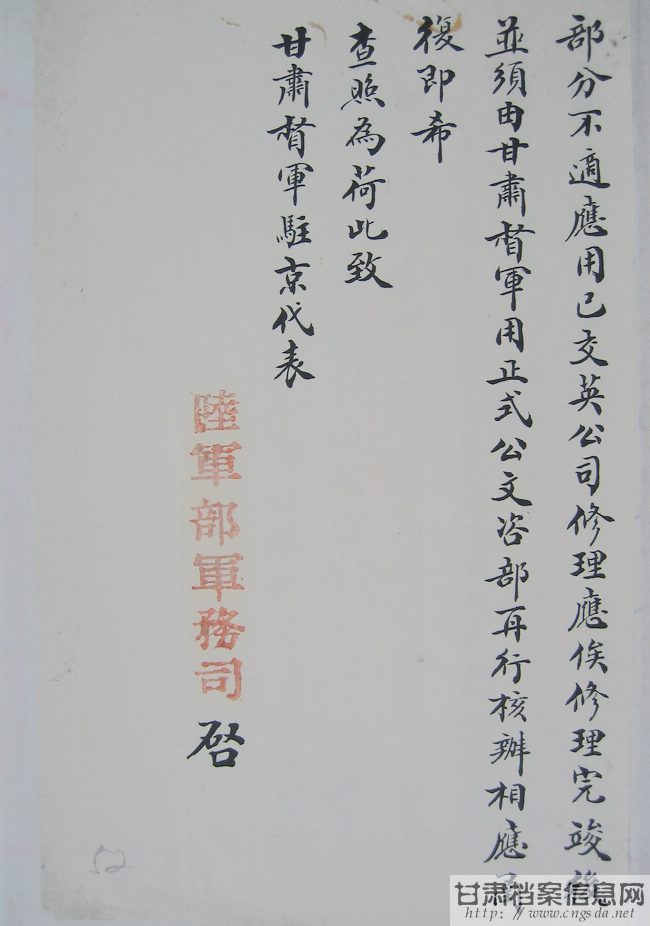 部分不適應用已交英公司修理應俟修理完竣後
並須由甘肅督軍用正式公文咨部再行核辦相應
復即希
查照為荷此致
甘肅督軍駐京代表
陸軍部軍務司啓
52
甘肃档案信息网
http://www.cngsda.net